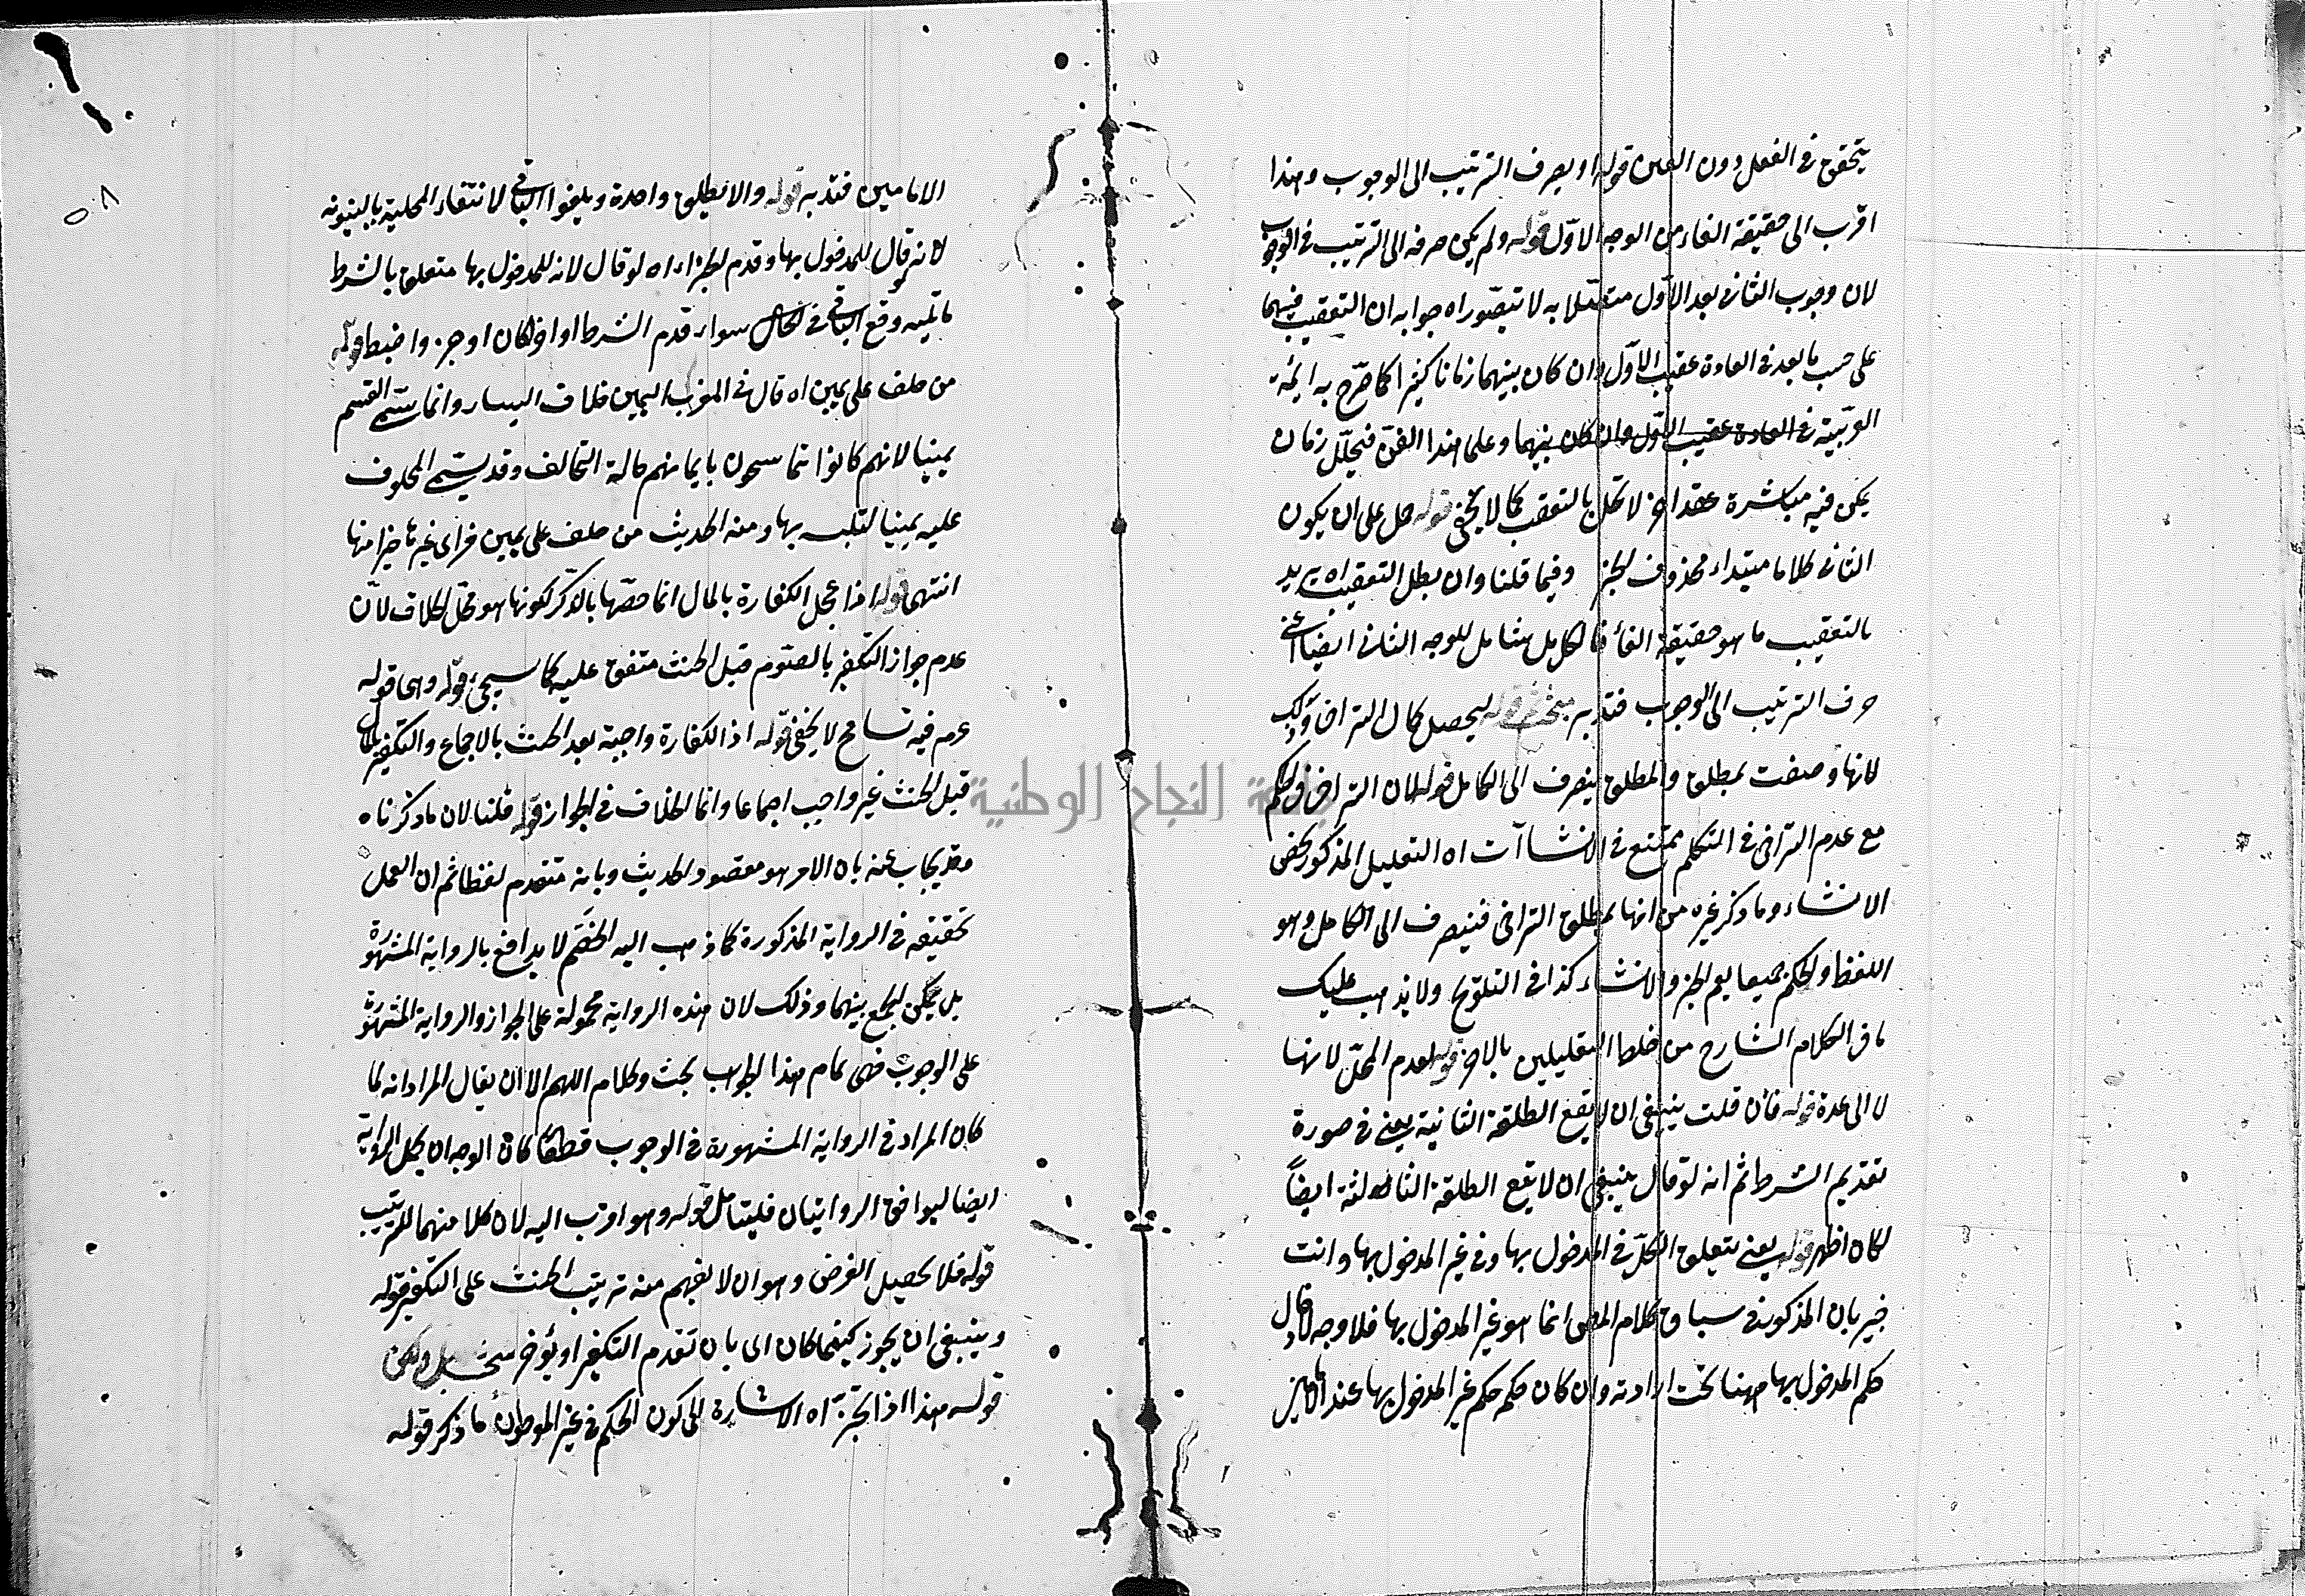 يتحقق في الفعل دون العين قوله او يصرف الترتيب الى الوجوب وهذا
اقرب الى حقيقة الفاء من الوجه الاول قوله ولم يكن صرفه الى الترتيب في الوجوب
لان وجوب الثاني بعد الاول متصلا به لا يتصور اه جوابه ان التعقيب فيهما
على حسب ما يعد في العادة عقيب الاول وان كان بينهما زمانا كثيرا كما صرح به ائمة
العربية في العادة عقيب الاول وان كان بينهما وعلى هذا الفن فتخلل زمان
يمكن فيه مباشرة عقد اخر لا تخل بالتعقيب كما لا يخفى قوله حمل على ان يكون
الثاني كلاما مبتداء محذوف الخبر وفيما قلنا وان بطل التعقيب اه يريد
بالتعقيب ما هو حقيقة الفاء فالكل شامل للوجه الثاني ايضا اعني
صرف الترتيب الى الوجوب فتدبر قوله ليحصل كمال التراخي وذلك
لانها وضعت لمطلق والمطلق ينصرف الى الكامل قوله لان التراخي في الحكم
مع عدم التراخي في التكلم ممتنع في الانشاآت اه التعليل المذكور يخص
الانشاء وما ذكر غيره من انها لمطلق التراخي فينصرف الى الكامل وهو
اللفظ والحكم جميعا يعم الخبر والانشاء كذا في التلويح ولا يذهب عليك
ما في الكلام الشارح من خلط التعليلين بالاخر قوله لعدم المحل لانها
لا الى عدة قوله فان قلت ينبغي ان لا يقع الطلقة الثانية يعني في صورة
تقديم الشرط ثم انه لو قال ينبغي ان لا يقع الطلقة الثالثة ايضاً
لكان اظهر قوله يعني يتعلق الكل في المدخول بها وفي غير المدخول بها وانت
خبير بان المذكور في سياق كلام المص انما هو غير المدخول بها فلا وجه لادخال
حكم المدخول بها ههنا تحت ارادته وان كان حكمه حكم غير المدخول بها عند الامامين
الامامين فتدبر قوله والا يطلق واحدة ويلغوا الباقي لانتفاء المحلية بالبينونة
لانه قال للمدخول بها وقدم الجزاء اه لو قال لانه للمدخول بها متعلق بالشرط
ما يليه وقع الباقي في الحال سواء قدم الشرط او اخر لكان اوجز واضبط قوله
من حلف على يمين اه قال في المغرب اليمين خلاف اليسار وانما سمى القسم
يمينا لانهم كانوا يتماسحون بايمانهم حالة التحالف وقد يسمى المحلوف
عليه يمينا لتلبسه بها ومنه الحديث من حلف على يمين فراى غيرها خيرا منها
انتهى قوله اذا عجل الكفارة بالمال انما خصها بالذكر لكونها هو محل الخلاف لان
عدم جواز التكفير بالصوم قبل الحنث متفق عليه كما سيجئ قوله وهى قوله
عم فيه تسامح لا يخفى قوله اذ الكفارة واجبة بعد الحنث بالاجماع والتكفير
قبل الحنث غير واجب اجماعا وانما الخلاف في الجواز قوله قلنا لان ما ذكرناه
وقد يجاب عنه بان الامر هو مقصود الحديث وبانه متقدم لفظا ثم ان العمل
تحقيقه في الرواية المذكورة كما ذهب اليه الخصم لا يدافع بالرواية المشهورة
بل يمكن الجمع بينهما وذلك لان هذه الرواية محمولة على الجواز والرواية المشهورة
على الوجوب ففى تمام هذا الجواب بحث وكلام اللهم الا ان يقال المراد انه لما
كان المراد في الرواية المشهورة في الوجوب قطعا كان الوجه ان يحمل الرواية
ايضا ليوافق الروايتان فليتامل قوله وهو اقرب اليه لان كلا منهما للترتيب
قوله فلا يحصل الغرض وهو ان لا يفهم منه ترتيب الحنث على التكفير قوله
وينبغي ان يجوز كيفما كان اى بان تقدم التكفير او يؤخر
قوله هذا اذا نجز اه الاشارة الى كون الحكم في غير الموطوئة ما ذكر قوله
جامعة النجاح الوطنية